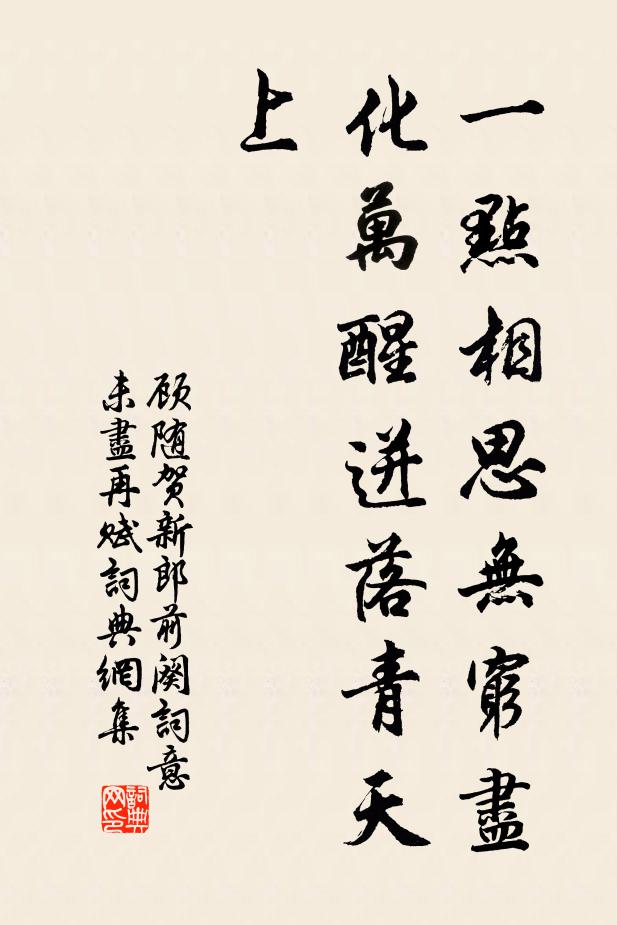 一點相思無窮盡
化萬醒迸落青天
上
顾随贺新郎前闋詞意
未盡再赋詞典網集
詞典
网印